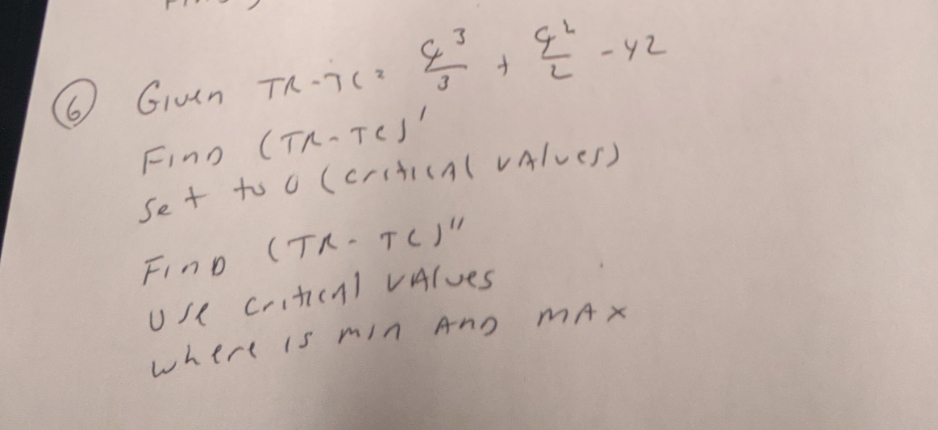 6 Given TR-TC = q^3/3 + q^2/2 - 42
Find (TR-TC)'
Set to 0 (critical values)
Find (TR-TC)"
Use critical values
where is min and max